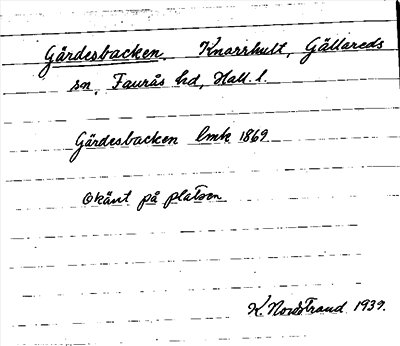 Gärdesbacken. Knarrhult, Gällareds
sn, Faurås hd, Hall. l.
Gärdesbacken lmk 1869
Okänt på platsen
K. Nordstrand 1939.